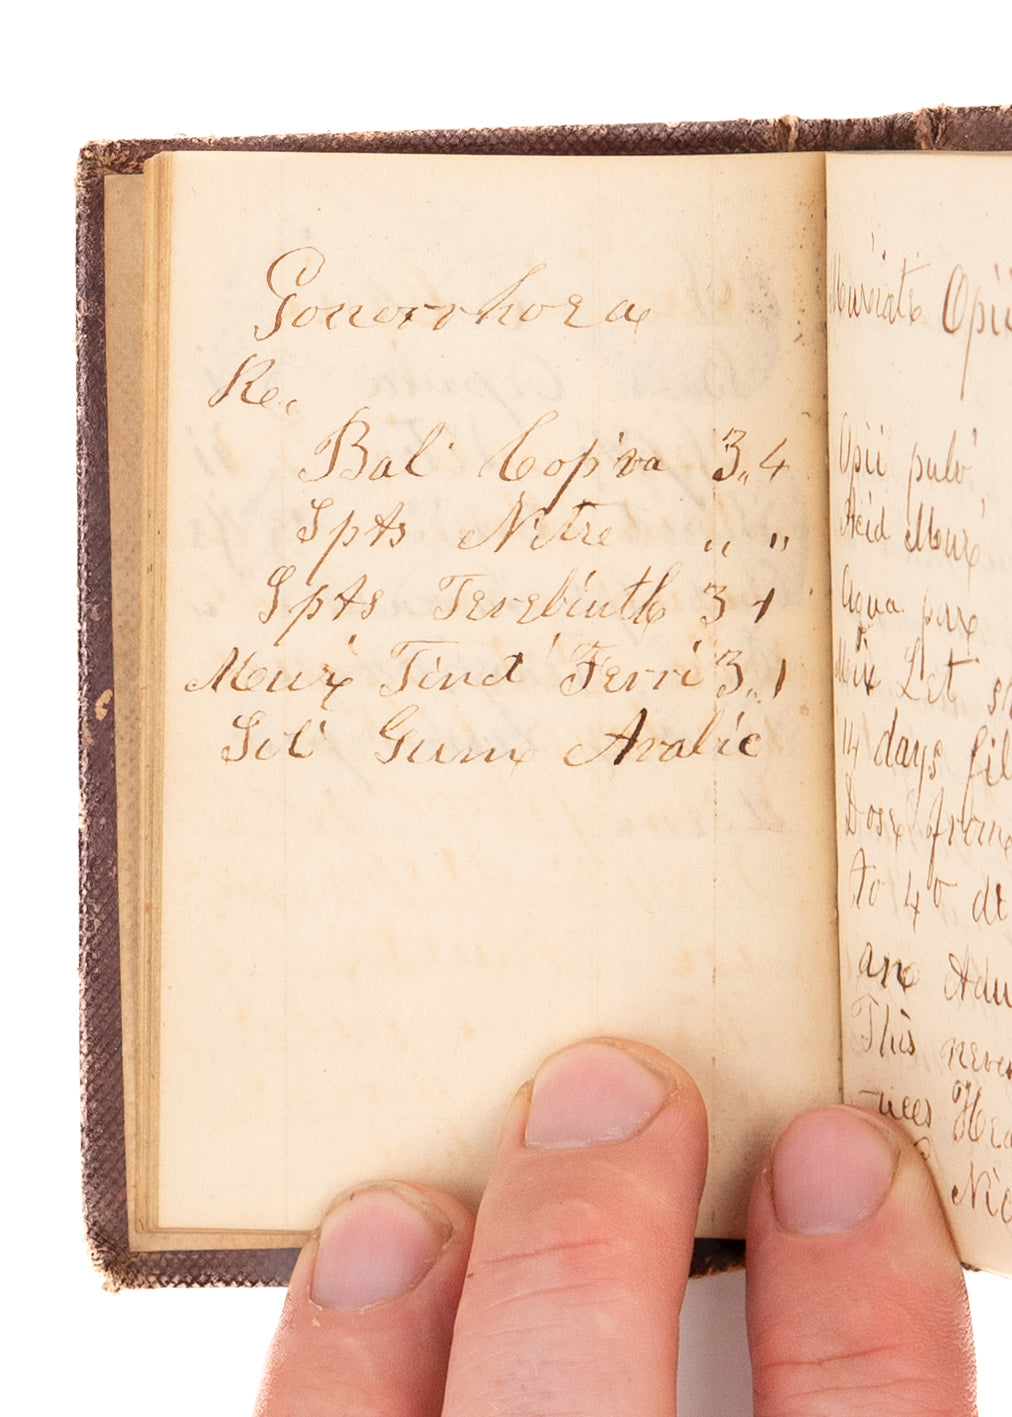 Gonorrhoea
Re,
Bal Cop'va 3,,4
Spts Nitre ,, ,,
Spts Terebinth 3 1
Mur Tinct Ferri 3,,1
Sol Gum Arabic
Muriate Opii
Opii pulv
Acid Mur
Aqua pure
Mix Let
14 days fil
Dose from
to 40 dt
are
This never